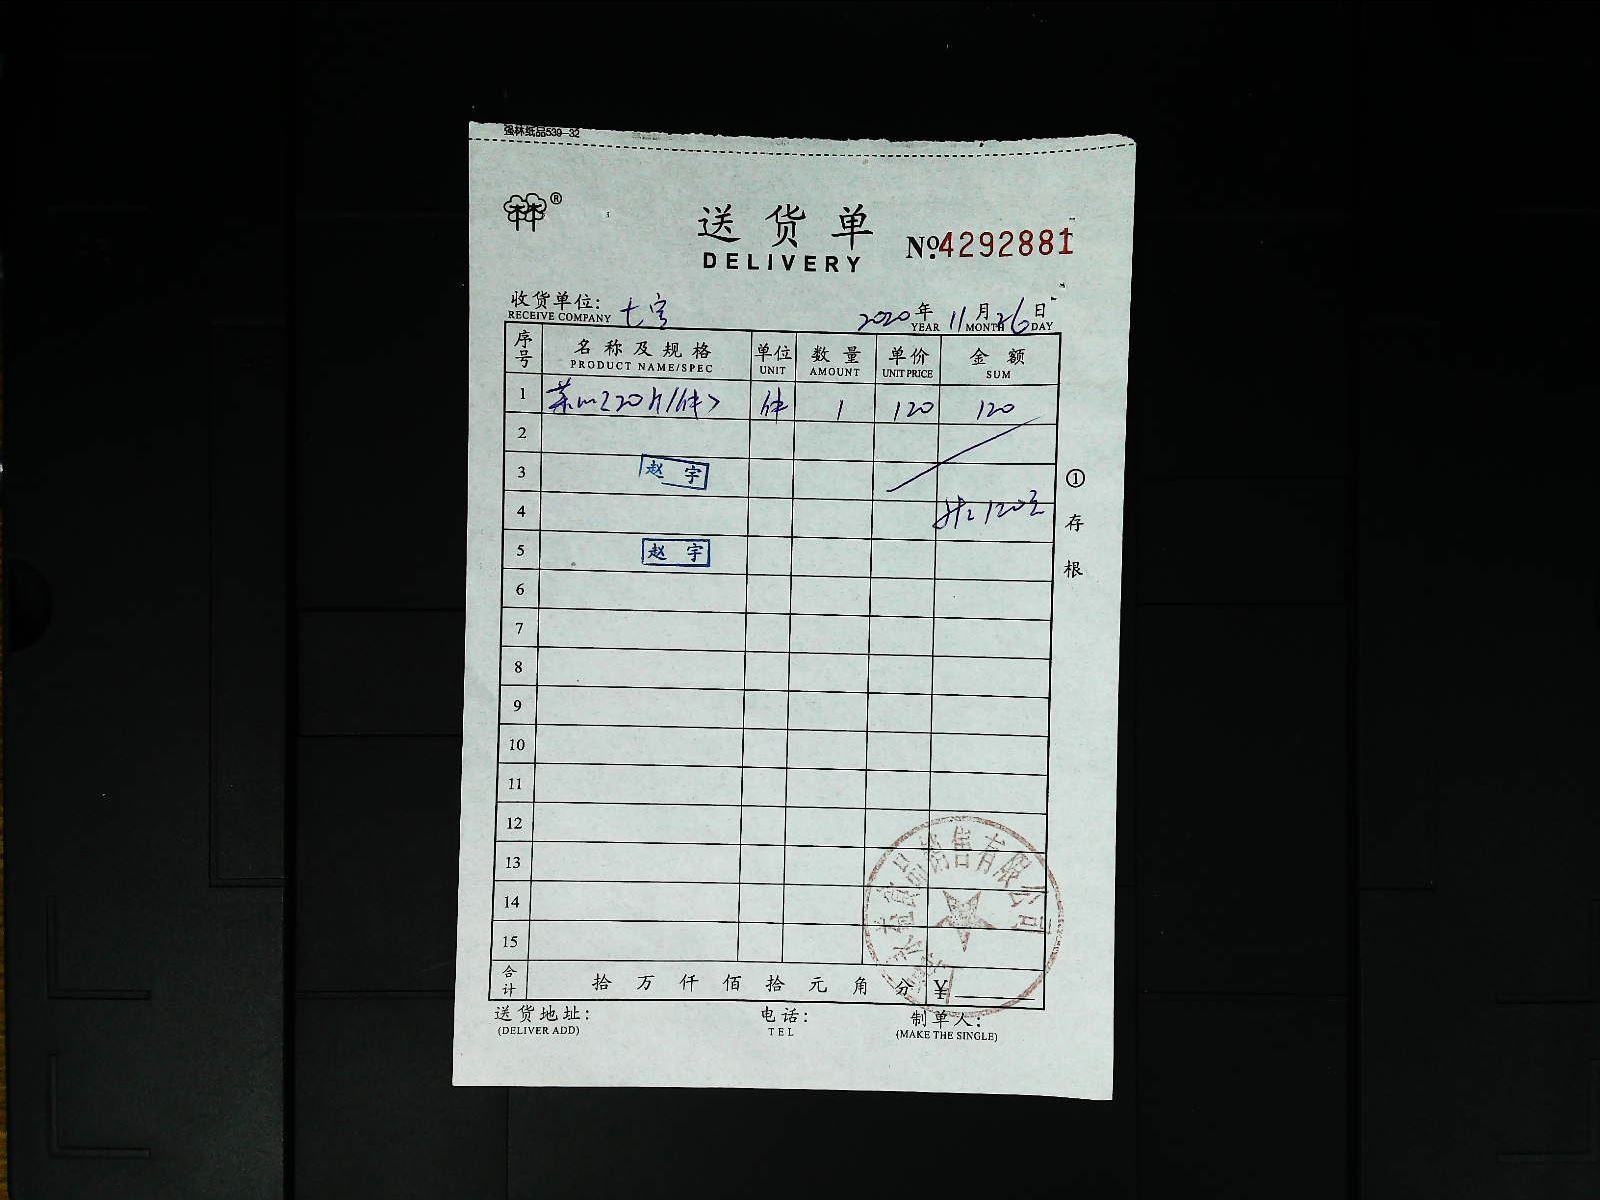 强林纸品539-32
林®
送货单
DELIVERY
№4292881
收货单位: 七宝
RECEIVE COMPANY
2020年11月26日
YEAR MONTH DAY
序号 名称及规格 单位 数量 单价 金额
PRODUCT NAME/SPEC UNIT AMOUNT UNIT PRICE SUM
1 件 1 120 120
2
3 赵宇
4 共:120元
5 赵宇
6
7
8
9
10
11
12
13
14
15
合计 拾万仟佰拾元角分 ¥
①存根
食品销售有限公司
送货地址: 电话: 制单人:
(DELIVER ADD) TEL (MAKE THE SINGLE)